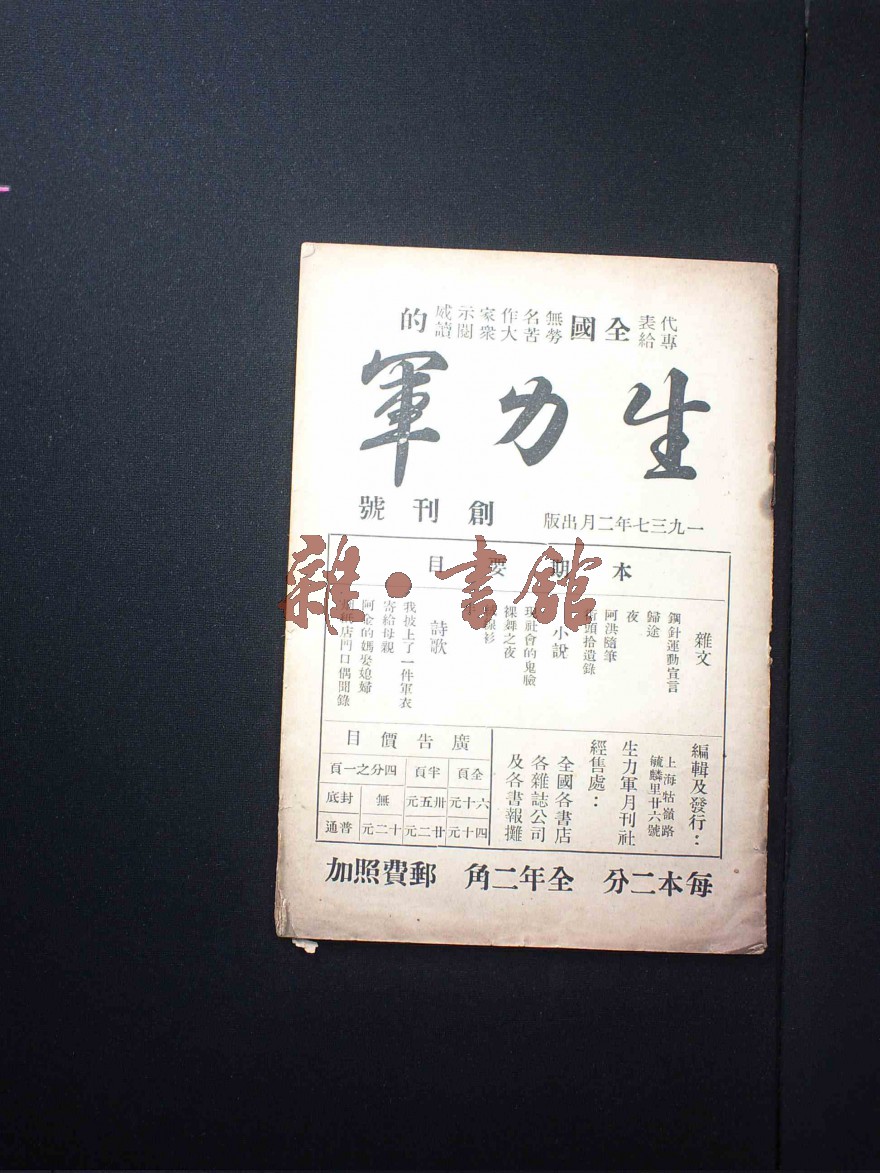 代表 專給 全國 無名作家示威 勞苦大衆閱讀 的
生力軍
一九三七年二月出版
創刊號
本期要目
雜文
鋼針運動宣言
歸途
夜
阿洪隨筆
街頭拾遺錄
小說
現社會的鬼臉
裸舞之夜
線衫
詩歌
我披上了一件軍衣
寄給母親
阿金的媽娶媳婦
店門口偶聞錄
編輯及發行：
上海牯嶺路
毓麟里廿六號
生力軍月刊社
經售處：
全國各書店
各雜誌公司
及各書報攤
廣告價目
全頁 半頁 四分之一頁
六十元 卅五元 無 封底
四十元 廿二元 十二元 普通
每本二分 全年二角 郵費照加
雜·書館